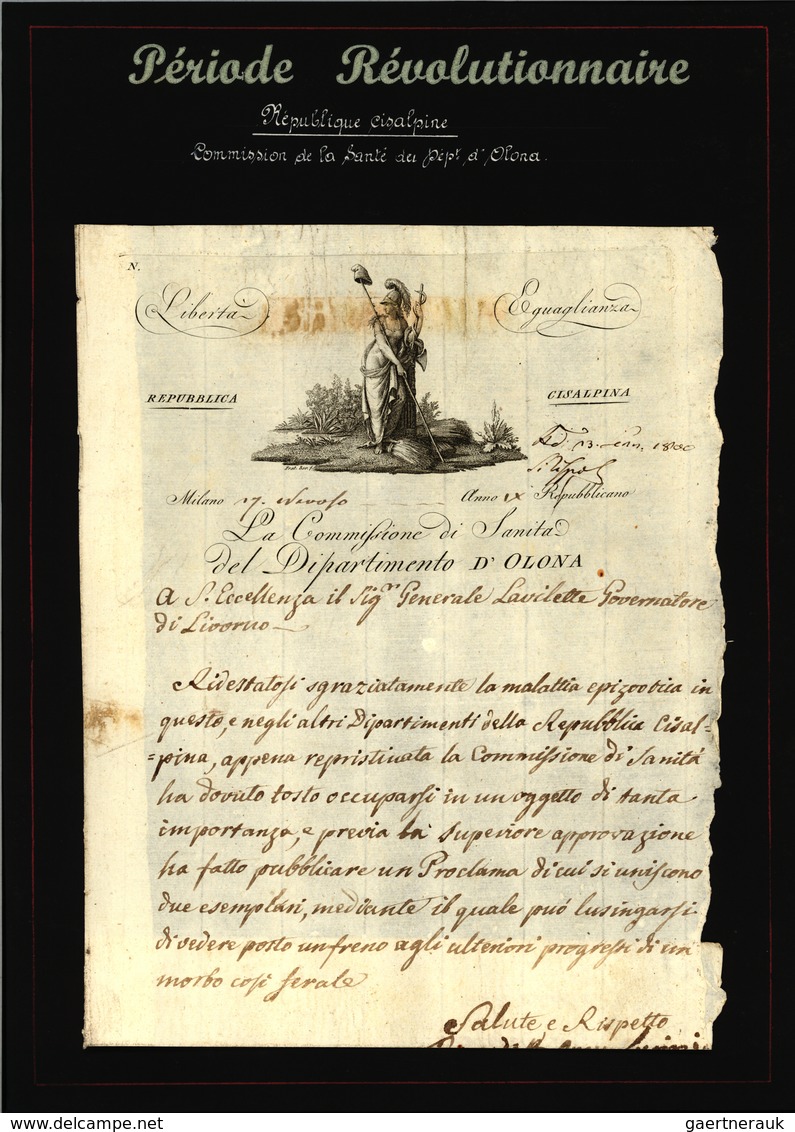 Période Révolutionnaire
République Cisalpine
Commission de la Santé du Dépt. d'Olona.
N.
Libertà Eguaglianza
REPUBBLICA CISALPINA
1800
Milano 17. Nevoso Anno IX Repubblicano
La Commissione di Sanità
del Dipartimento D'OLONA
A S. Eccellenza il Sigr. Generale Lavilette Governatore
di Livorno
Ridestatosi sgraziatamente la malattia epizootica in
questo, e negli altri Dipartimenti della Repubblica Cisal=
=pina, appena repristinata la Commissione di Sanità
ha dovuto tosto occuparsi in un oggetto di tanta
importanza, e previa la Superiore approvazione
ha fatto pubblicare un Proclama di cui si uniscono
due esemplari, mediante il quale può lusingarsi
di vedere posto un freno agli ulteriori progressi di un
morbo così ferale
Salute e Rispetto
gaertnerauk delcampe.net